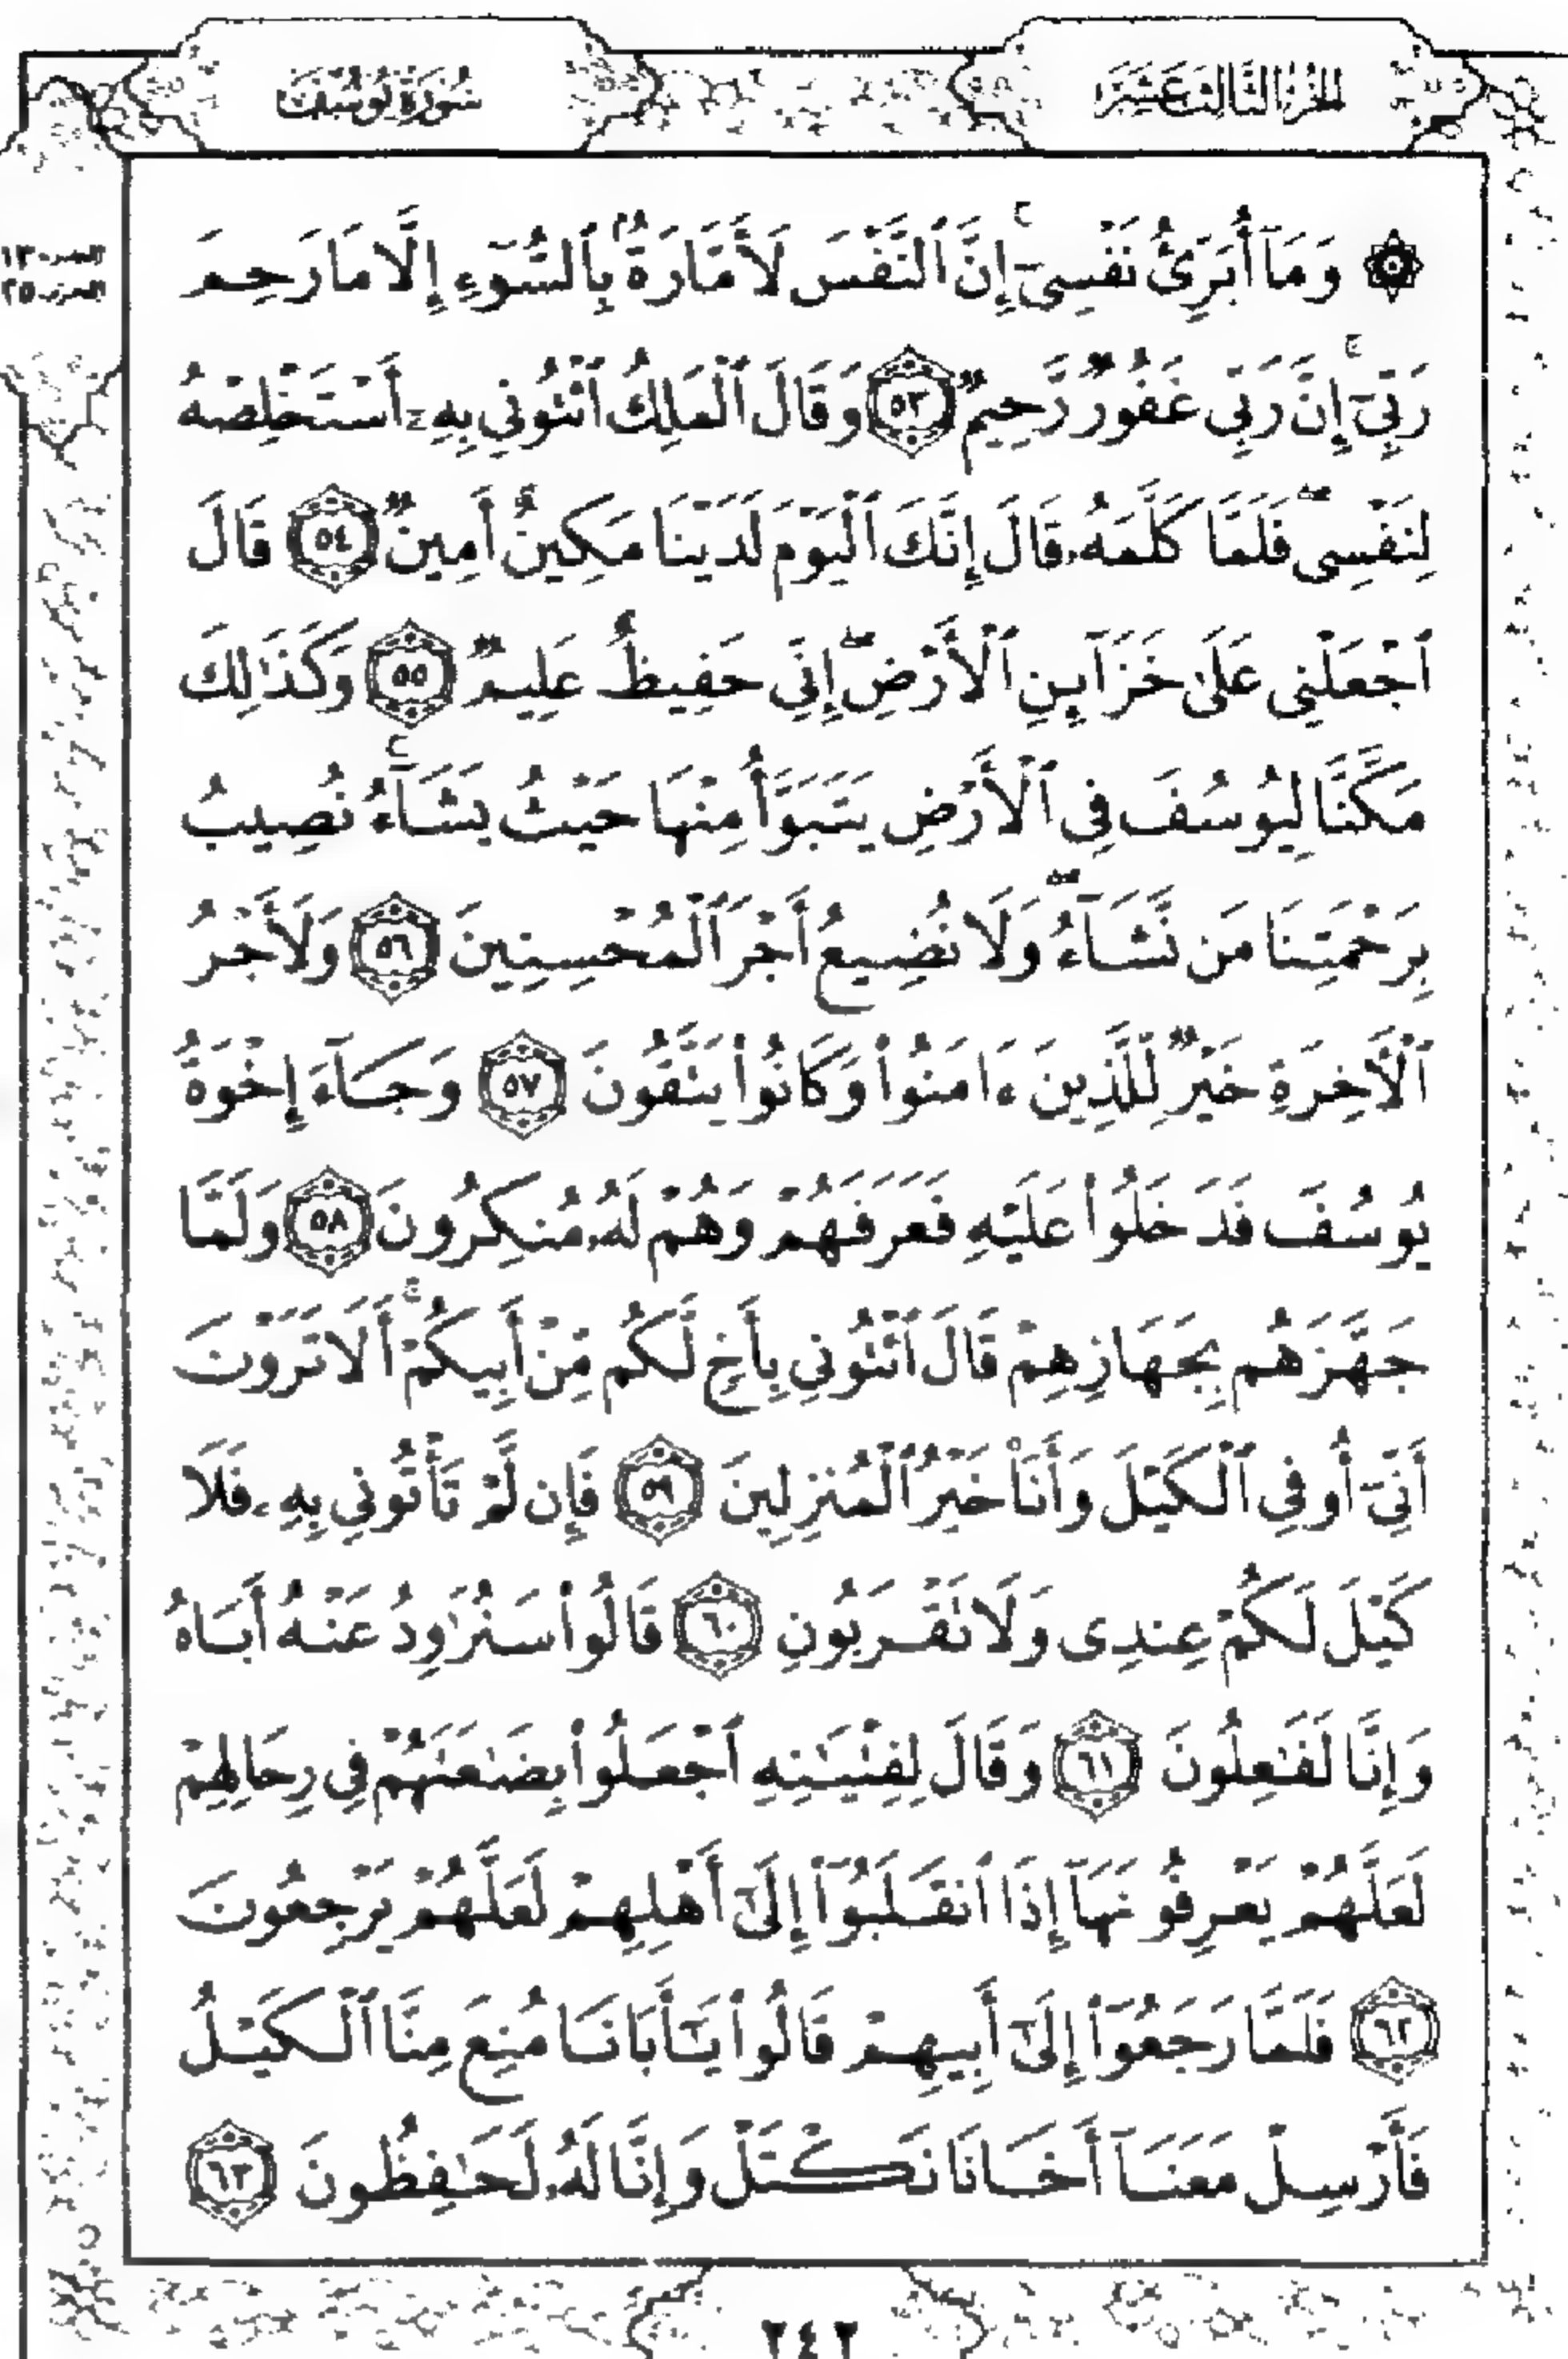 الجزء الثالث عشر
سورة يوسف
الجزء ١٣
الحزب ٢٥
۞ وَمَآ أُبَرِّئُ نَفْسِىٓ ۚ إِنَّ ٱلنَّفْسَ لَأَمَّارَةٌۢ بِٱلسُّوٓءِ إِلَّا مَا رَحِمَ
رَبِّىٓ ۚ إِنَّ رَبِّى غَفُورٌ رَّحِيمٌ ٥٣ وَقَالَ ٱلْمَلِكُ ٱئْتُونِى بِهِۦٓ أَسْتَخْلِصْهُ
لِنَفْسِى ۖ فَلَمَّا كَلَّمَهُۥ قَالَ إِنَّكَ ٱلْيَوْمَ لَدَيْنَا مَكِينٌ أَمِينٌ ٥٤ قَالَ
ٱجْعَلْنِى عَلَىٰ خَزَآئِنِ ٱلْأَرْضِ ۖ إِنِّى حَفِيظٌ عَلِيمٌ ٥٥ وَكَذَٰلِكَ
مَكَّنَّا لِيُوسُفَ فِى ٱلْأَرْضِ يَتَبَوَّأُ مِنْهَا حَيْثُ يَشَآءُ ۚ نُصِيبُ
بِرَحْمَتِنَا مَن نَّشَآءُ ۖ وَلَا نُضِيعُ أَجْرَ ٱلْمُحْسِنِينَ ٥٦ وَلَأَجْرُ
ٱلْأَخِرَةِ خَيْرٌ لِّلَّذِينَ ءَامَنُوا۟ وَكَانُوا۟ يَتَّقُونَ ٥٧ وَجَآءَ إِخْوَةُ
يُوسُفَ فَدَخَلُوا۟ عَلَيْهِ فَعَرَفَهُمْ وَهُمْ لَهُۥ مُنكِرُونَ ٥٨ وَلَمَّا
جَهَّزَهُم بِجَهَازِهِمْ قَالَ ٱئْتُونِى بِأَخٍ لَّكُم مِّنْ أَبِيكُمْ ۚ أَلَا تَرَوْنَ
أَنِّىٓ أُوفِى ٱلْكَيْلَ وَأَنَا۠ خَيْرُ ٱلْمُنزِلِينَ ٥٩ فَإِن لَّمْ تَأْتُونِى بِهِۦ فَلَا
كَيْلَ لَكُمْ عِندِى وَلَا تَقْرَبُونِ ٦٠ قَالُوا۟ سَنُرَٰوِدُ عَنْهُ أَبَاهُ
وَإِنَّا لَفَـٰعِلُونَ ٦١ وَقَالَ لِفِتْيَـٰنِهِ ٱجْعَلُوا۟ بِضَـٰعَتَهُمْ فِى رِحَالِهِمْ
لَعَلَّهُمْ يَعْرِفُونَهَآ إِذَا ٱنقَلَبُوٓا۟ إِلَىٰٓ أَهْلِهِمْ لَعَلَّهُمْ يَرْجِعُونَ
٦٢ فَلَمَّا رَجَعُوٓا۟ إِلَىٰٓ أَبِيهِمْ قَالُوا۟ يَـٰٓأَبَانَا مُنِعَ مِنَّا ٱلْكَيْلُ
فَأَرْسِلْ مَعَنَآ أَخَانَا نَكْتَلْ وَإِنَّا لَهُۥ لَحَـٰفِظُونَ ٦٣
٢٤٢